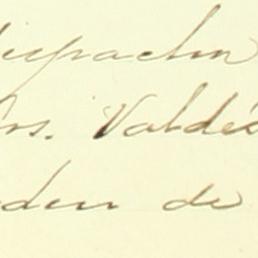 despachu
Drs. Valdé
den de